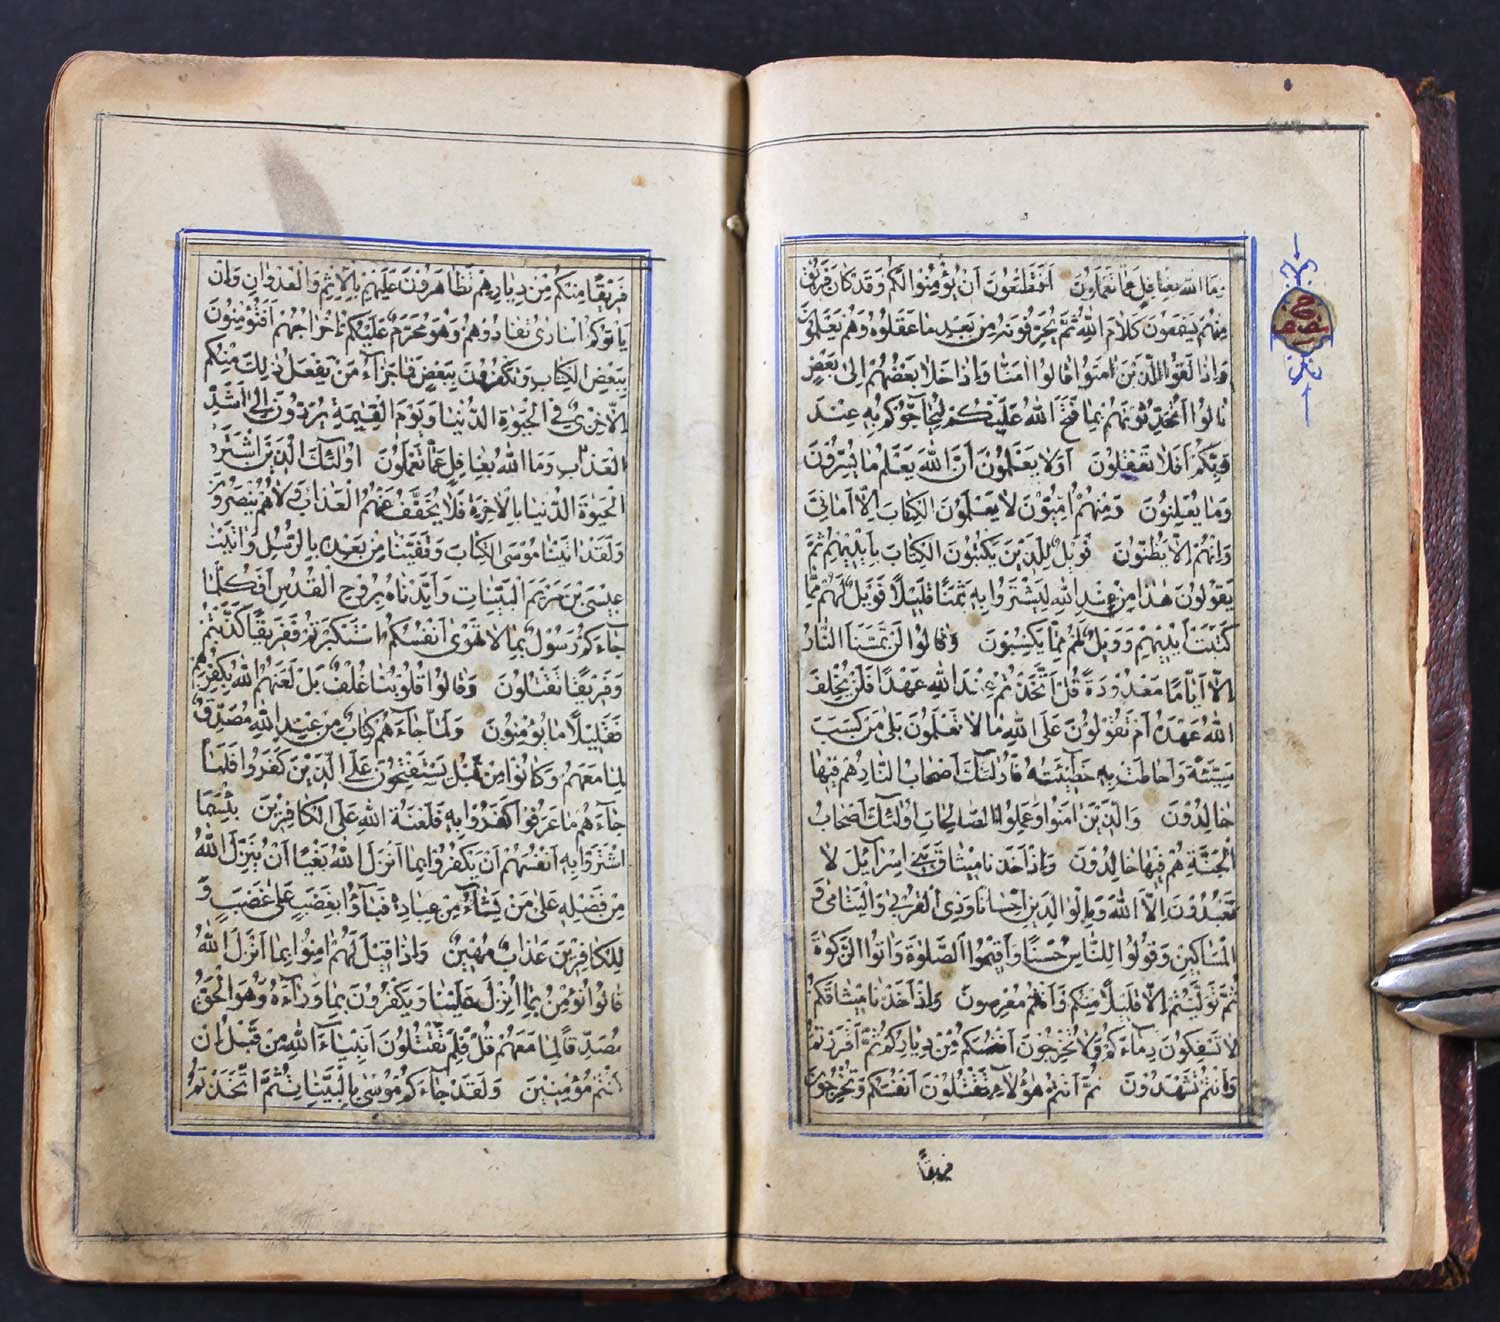 وَمَا اللهُ بِغَافِلٍ عَمَّا تَعْمَلُونَ اَفَتَطْمَعُونَ اَنْ يُؤْمِنُوا لَكُمْ وَقَدْ كَانَ فَرِيقٌ
مِنْهُمْ يَسْمَعُونَ كَلَامَ اللهِ ثُمَّ يُحَرِّفُونَهُ مِنْ بَعْدِ مَا عَقَلُوهُ وَهُمْ يَعْلَمُونَ
وَاِذَا لَقُوا الَّذِينَ اٰمَنُوا قَالُوا اٰمَنَّا وَاِذَا خَلَا بَعْضُهُمْ اِلٰى بَعْضٍ
قَالُوا اَتُحَدِّثُونَهُمْ بِمَا فَتَحَ اللهُ عَلَيْكُمْ لِيُحَاجُّوكُمْ بِهِ عِنْدَ
رَبِّكُمْ اَفَلَا تَعْقِلُونَ اَوَلَا يَعْلَمُونَ اَنَّ اللهَ يَعْلَمُ مَا يُسِرُّونَ
وَمَا يُعْلِنُونَ وَمِنْهُمْ اُمِّيُّونَ لَا يَعْلَمُونَ الْكِتَابَ اِلَّا اَمَانِيَّ
وَاِنْهُمْ اِلَّا يَظُنُّونَ فَوَيْلٌ لِلَّذِينَ يَكْتُبُونَ الْكِتَابَ بِاَيْدِيهِمْ ثُمَّ
يَقُولُونَ هٰذَا مِنْ عِنْدِ اللهِ لِيَشْتَرُوا بِهِ ثَمَنًا قَلِيلًا فَوَيْلٌ لَهُمْ مِمَّا
كَتَبَتْ اَيْدِيهِمْ وَوَيْلٌ لَهُمْ مِمَّا يَكْسِبُونَ وَقَالُوا لَنْ تَمَسَّنَا النَّارُ
اِلَّا اَيَّامًا مَعْدُودَةً قُلْ اَتَّخَذْتُمْ عِنْدَ اللهِ عَهْدًا فَلَنْ يُخْلِفَ
اللهُ عَهْدَهُ اَمْ تَقُولُونَ عَلَى اللهِ مَا لَا تَعْلَمُونَ بَلٰى مَنْ كَسَبَ
سَيِّئَةً وَاَحَاطَتْ بِهِ خَطِيئَتُهُ فَاُولٰئِكَ اَصْحَابُ النَّارِ هُمْ فِيهَا
خَالِدُونَ وَالَّذِينَ اٰمَنُوا وَعَمِلُوا الصَّالِحَاتِ اُولٰئِكَ اَصْحَابُ
الْجَنَّةِ هُمْ فِيهَا خَالِدُونَ وَاِذْ اَخَذْنَا مِيثَاقَ بَنِي اِسْرَائِيلَ لَا
تَعْبُدُونَ اِلَّا اللهَ وَبِالْوَالِدَيْنِ اِحْسَانًا وَذِي الْقُرْبٰى وَالْيَتَامٰى وَ
الْمَسَاكِينِ وَقُولُوا لِلنَّاسِ حُسْنًا وَاَقِيمُوا الصَّلٰوةَ وَاٰتُوا الزَّكٰوةَ
ثُمَّ تَوَلَّيْتُمْ اِلَّا قَلِيلًا مِنْكُمْ وَاَنْتُمْ مُعْرِضُونَ وَاِذْ اَخَذْنَا مِيثَاقَكُمْ
لَا تَسْفِكُونَ دِمَاءَكُمْ وَلَا تُخْرِجُونَ اَنْفُسَكُمْ مِنْ دِيَارِكُمْ ثُمَّ اَقْرَرْتُمْ
وَاَنْتُمْ تَشْهَدُونَ ثُمَّ اَنْتُمْ هٰؤُلَاءِ تَقْتُلُونَ اَنْفُسَكُمْ وَتُخْرِجُونَ
فريقًا
فَرِيقًا مِنْكُمْ مِنْ دِيَارِهِمْ تَظَاهَرُونَ عَلَيْهِمْ بِالْاِثْمِ وَالْعُدْوَانِ وَاِنْ
يَاْتُوكُمْ اُسَارٰى تُفَادُوهُمْ وَهُوَ مُحَرَّمٌ عَلَيْكُمْ اِخْرَاجُهُمْ اَفَتُؤْمِنُونَ
بِبَعْضِ الْكِتَابِ وَتَكْفُرُونَ بِبَعْضٍ فَمَا جَزَاءُ مَنْ يَفْعَلُ ذٰلِكَ مِنْكُمْ
اِلَّا خِزْيٌ فِي الْحَيٰوةِ الدُّنْيَا وَيَوْمَ الْقِيٰمَةِ يُرَدُّونَ اِلٰى اَشَدِّ
الْعَذَابِ وَمَا اللهُ بِغَافِلٍ عَمَّا تَعْمَلُونَ اُولٰئِكَ الَّذِينَ اشْتَرَوُا
الْحَيٰوةَ الدُّنْيَا بِالْاٰخِرَةِ فَلَا يُخَفَّفُ عَنْهُمُ الْعَذَابُ وَلَا هُمْ يُنْصَرُونَ
وَلَقَدْ اٰتَيْنَا مُوسَى الْكِتَابَ وَقَفَّيْنَا مِنْ بَعْدِهِ بِالرُّسُلِ وَاٰتَيْنَا
عِيسَى بْنَ مَرْيَمَ الْبَيِّنَاتِ وَاَيَّدْنَاهُ بِرُوحِ الْقُدُسِ اَفَكُلَّمَا
جَاءَكُمْ رَسُولٌ بِمَا لَا تَهْوٰى اَنْفُسُكُمُ اسْتَكْبَرْتُمْ فَفَرِيقًا كَذَّبْتُمْ
وَفَرِيقًا تَقْتُلُونَ وَقَالُوا قُلُوبُنَا غُلْفٌ بَلْ لَعَنَهُمُ اللهُ بِكُفْرِهِمْ
فَقَلِيلًا مَا يُؤْمِنُونَ وَلَمَّا جَاءَهُمْ كِتَابٌ مِنْ عِنْدِ اللهِ مُصَدِّقٌ
لِمَا مَعَهُمْ وَكَانُوا مِنْ قَبْلُ يَسْتَفْتِحُونَ عَلَى الَّذِينَ كَفَرُوا فَلَمَّا
جَاءَهُمْ مَا عَرَفُوا كَفَرُوا بِهِ فَلَعْنَةُ اللهِ عَلَى الْكَافِرِينَ بِئْسَمَا
اشْتَرَوْا بِهِ اَنْفُسَهُمْ اَنْ يَكْفُرُوا بِمَا اَنْزَلَ اللهُ بَغْيًا اَنْ يُنَزِّلَ اللهُ
مِنْ فَضْلِهِ عَلٰى مَنْ يَشَاءُ مِنْ عِبَادِهِ فَبَاؤُا بِغَضَبٍ عَلٰى غَضَبٍ وَ
لِلْكَافِرِينَ عَذَابٌ مُهِينٌ وَاِذَا قِيلَ لَهُمْ اٰمِنُوا بِمَا اَنْزَلَ اللهُ
قَالُوا نُؤْمِنُ بِمَا اُنْزِلَ عَلَيْنَا وَيَكْفُرُونَ بِمَا وَرَاءَهُ وَهُوَ الْحَقُّ
مُصَدِّقًا لِمَا مَعَهُمْ قُلْ فَلِمَ تَقْتُلُونَ اَنْبِيَاءَ اللهِ مِنْ قَبْلُ اِنْ
كُنْتُمْ مُؤْمِنِينَ وَلَقَدْ جَاءَكُمْ مُوسٰى بِالْبَيِّنَاتِ ثُمَّ اتَّخَذْتُمُ